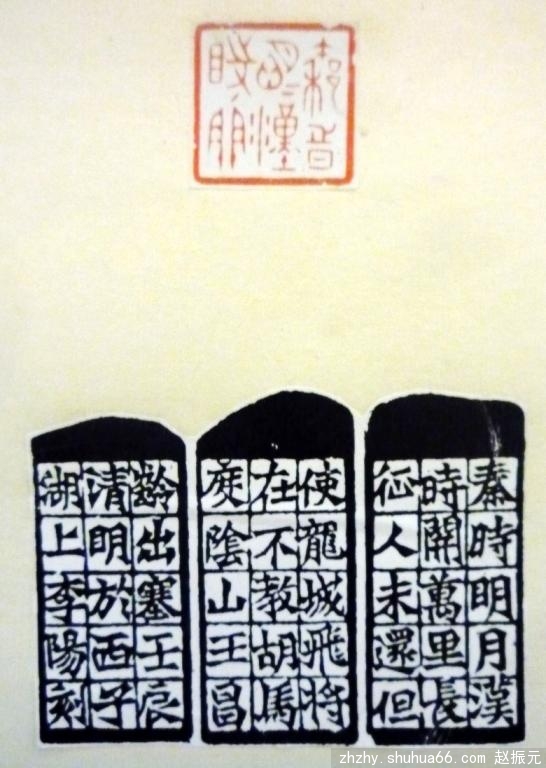 秦時明月漢
時關萬里長
征人未還但
使龍城飛將
在不教胡馬
度陰山王昌
齡出塞壬辰
清明於西子
湖上李陽刻
zhzhy.shuhua66.com 赵振元